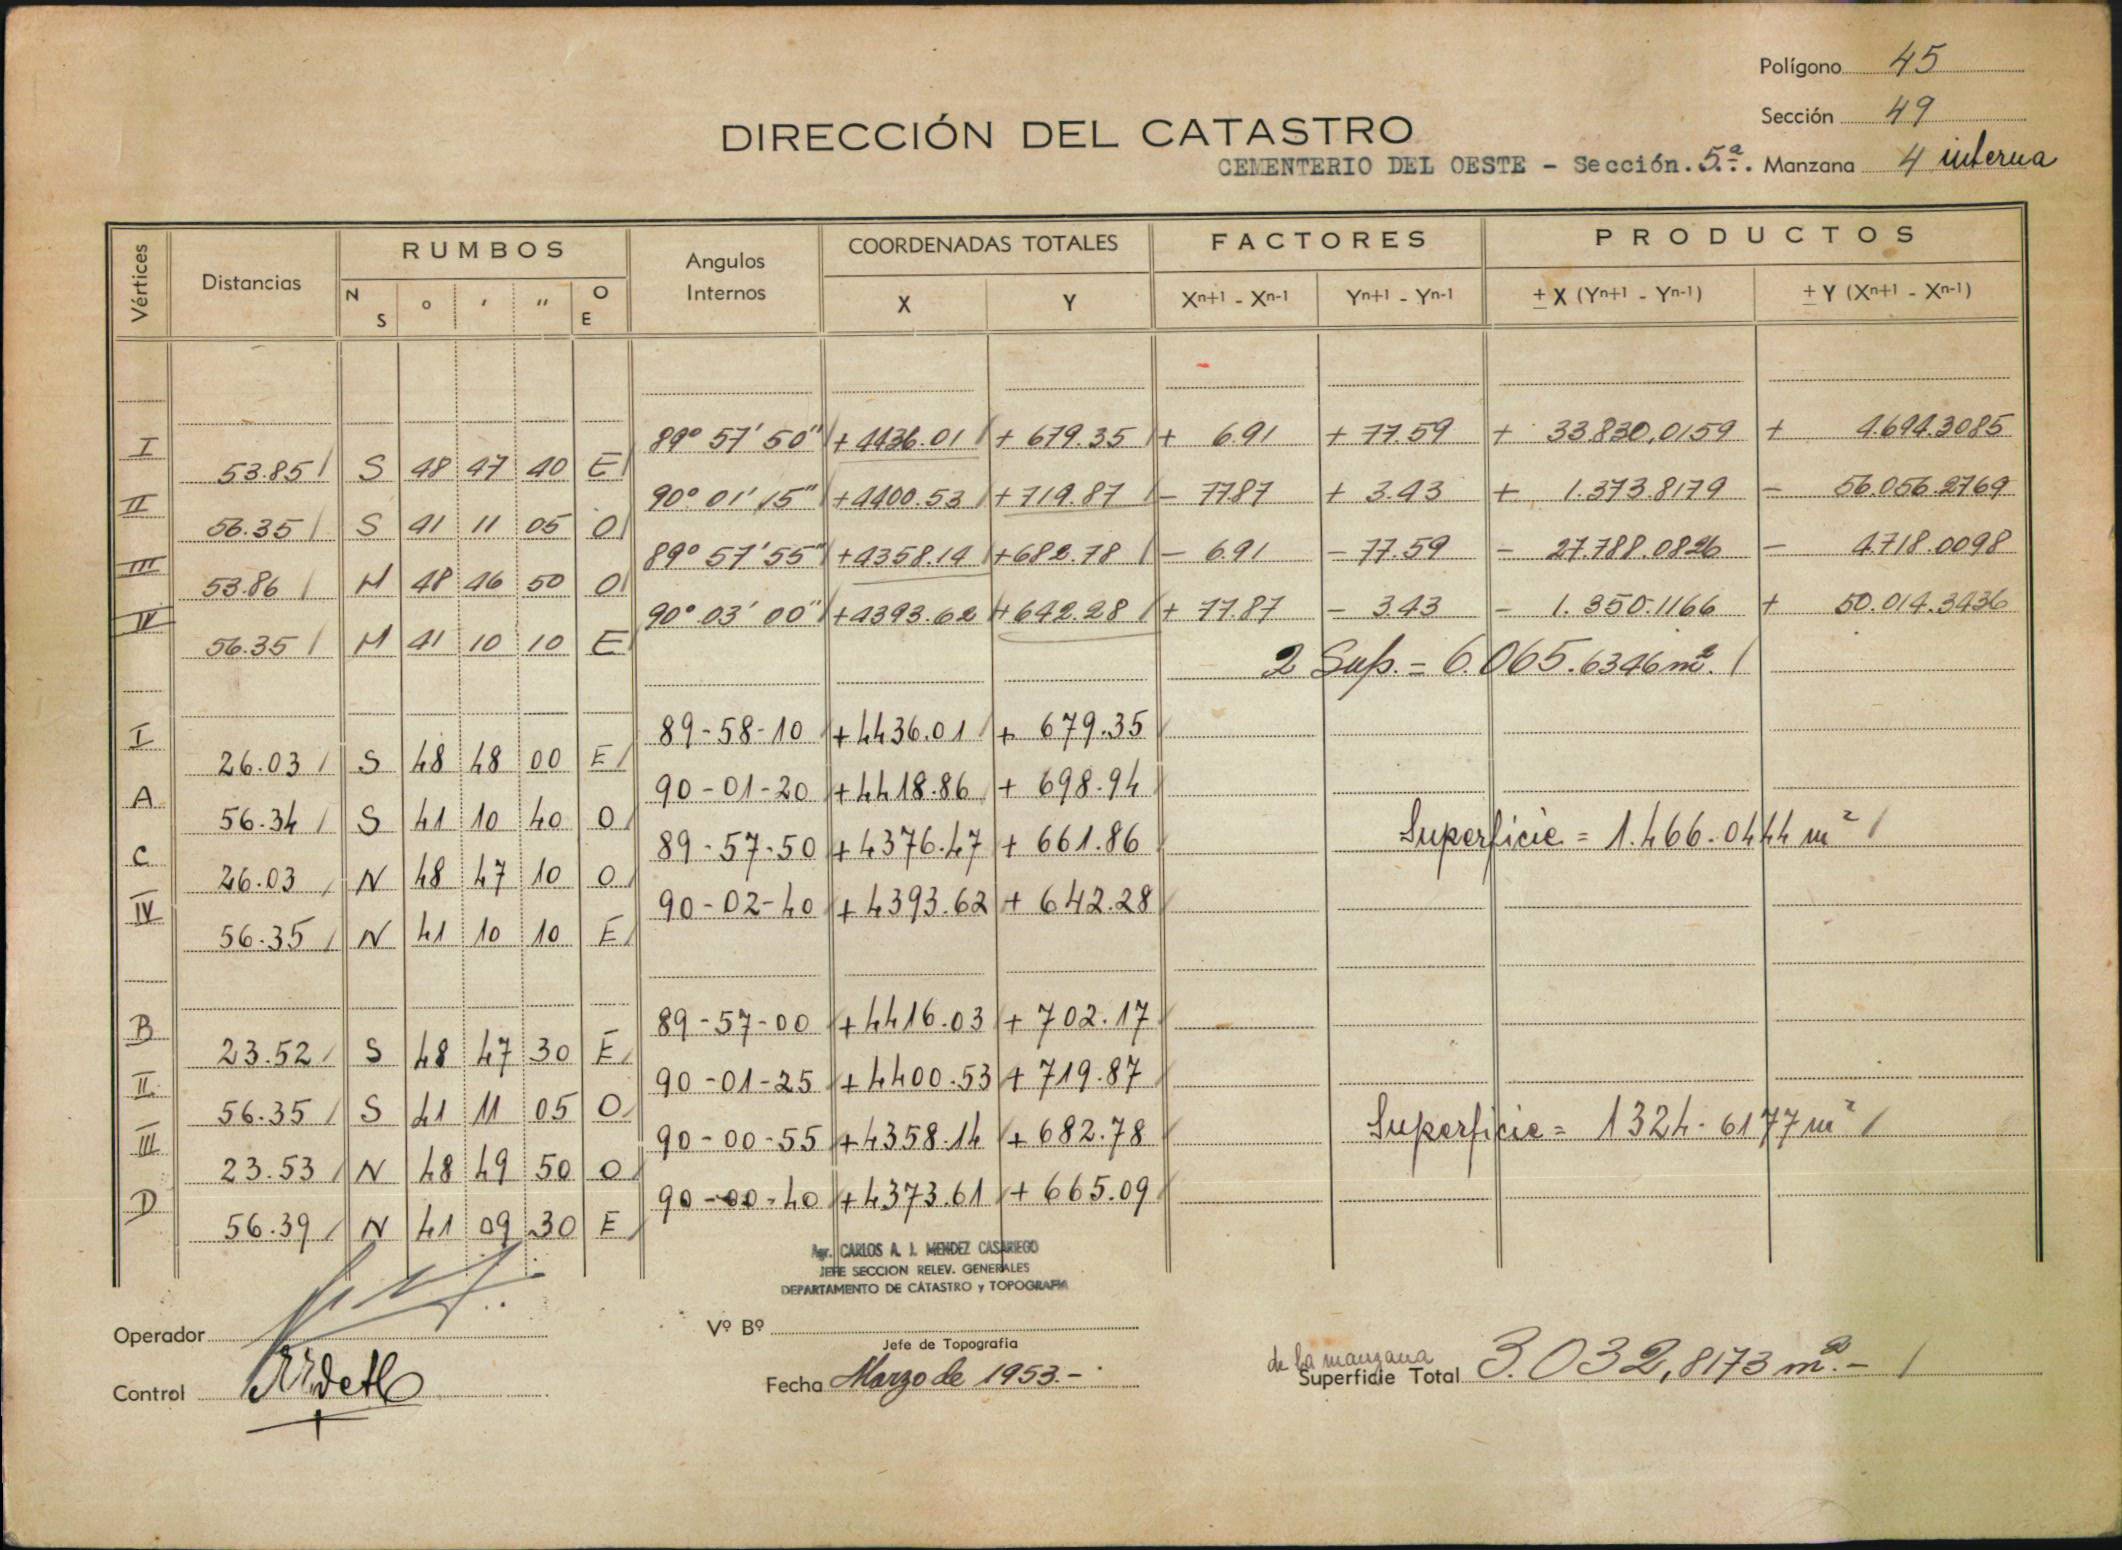 Polígono 45
Sección 49
DIRECCIÓN DEL CATASTRO
CEMENTERIO DEL OESTE - Sección. 5.ª. Manzana 4 interna
Vértices Distancias RUMBOS Angulos Internos COORDENADAS TOTALES FACTORES PRODUCTOS
N S º ' " O E X Y Xn+1 - Xn-1 Yn+1 - Yn-1 ± X (Yn+1 - Yn-1) ± Y (Xn+1 - Xn-1)
I 89º 57' 50" +4436.01 + 679.35 + 6.91 + 77.59 + 33.830,0159 + 4.694.3085
53.85 S 48 47 40 E
II 90º 01' 15" +4400.53 +719.87 - 77.87 + 3.43 + 1.373.8179 - 56.056.2769
56.35 S 41 11 05 O
III 89º 57' 55" +4358.14 +682.78 - 6.91 - 77.59 - 27.788.0826 - 4.718.0098
53.86 N 48 46 50 O
IV 90º 03' 00" +4393.62 +642.28 + 77.87 - 3.43 - 1.350.1166 + 50.014.3436
56.35 N 41 10 10 E
2 Sup. = 6.065.6346 m².
I 89-58-10 +4436.01 + 679.35
26.03 S 48 48 00 E
A 90-01-20 +4418.86 + 698.94
56.34 S 41 10 40 O
C 89-57-50 +4376.47 + 661.86
Superficie = 1.466.0444 m²
26.03 N 48 47 10 O
IV 90-02-40 +4393.62 + 642.28
56.35 N 41 10 10 E
B 89-57-00 +4416.03 + 702.17
23.52 S 48 47 30 E
II 90-01-25 +4400.53 + 719.87
56.35 S 41 11 05 O
III 90-00-55 +4358.14 + 682.78
Superficie = 1324.6177 m²
23.53 N 48 49 50 O
D 90-00-40 +4373.61 + 665.09
56.39 N 41 09 30 E
Agr. CARLOS A. J. MENDEZ CASARIEGO
JEFE SECCION RELEV. GENERALES
DEPARTAMENTO DE CATASTRO y TOPOGRAFIA
Operador
Vº Bº
Jefe de Topografía
Control
Fecha Marzo de 1953.-
de la manzana
Superficie Total 3.032,8173 m².-